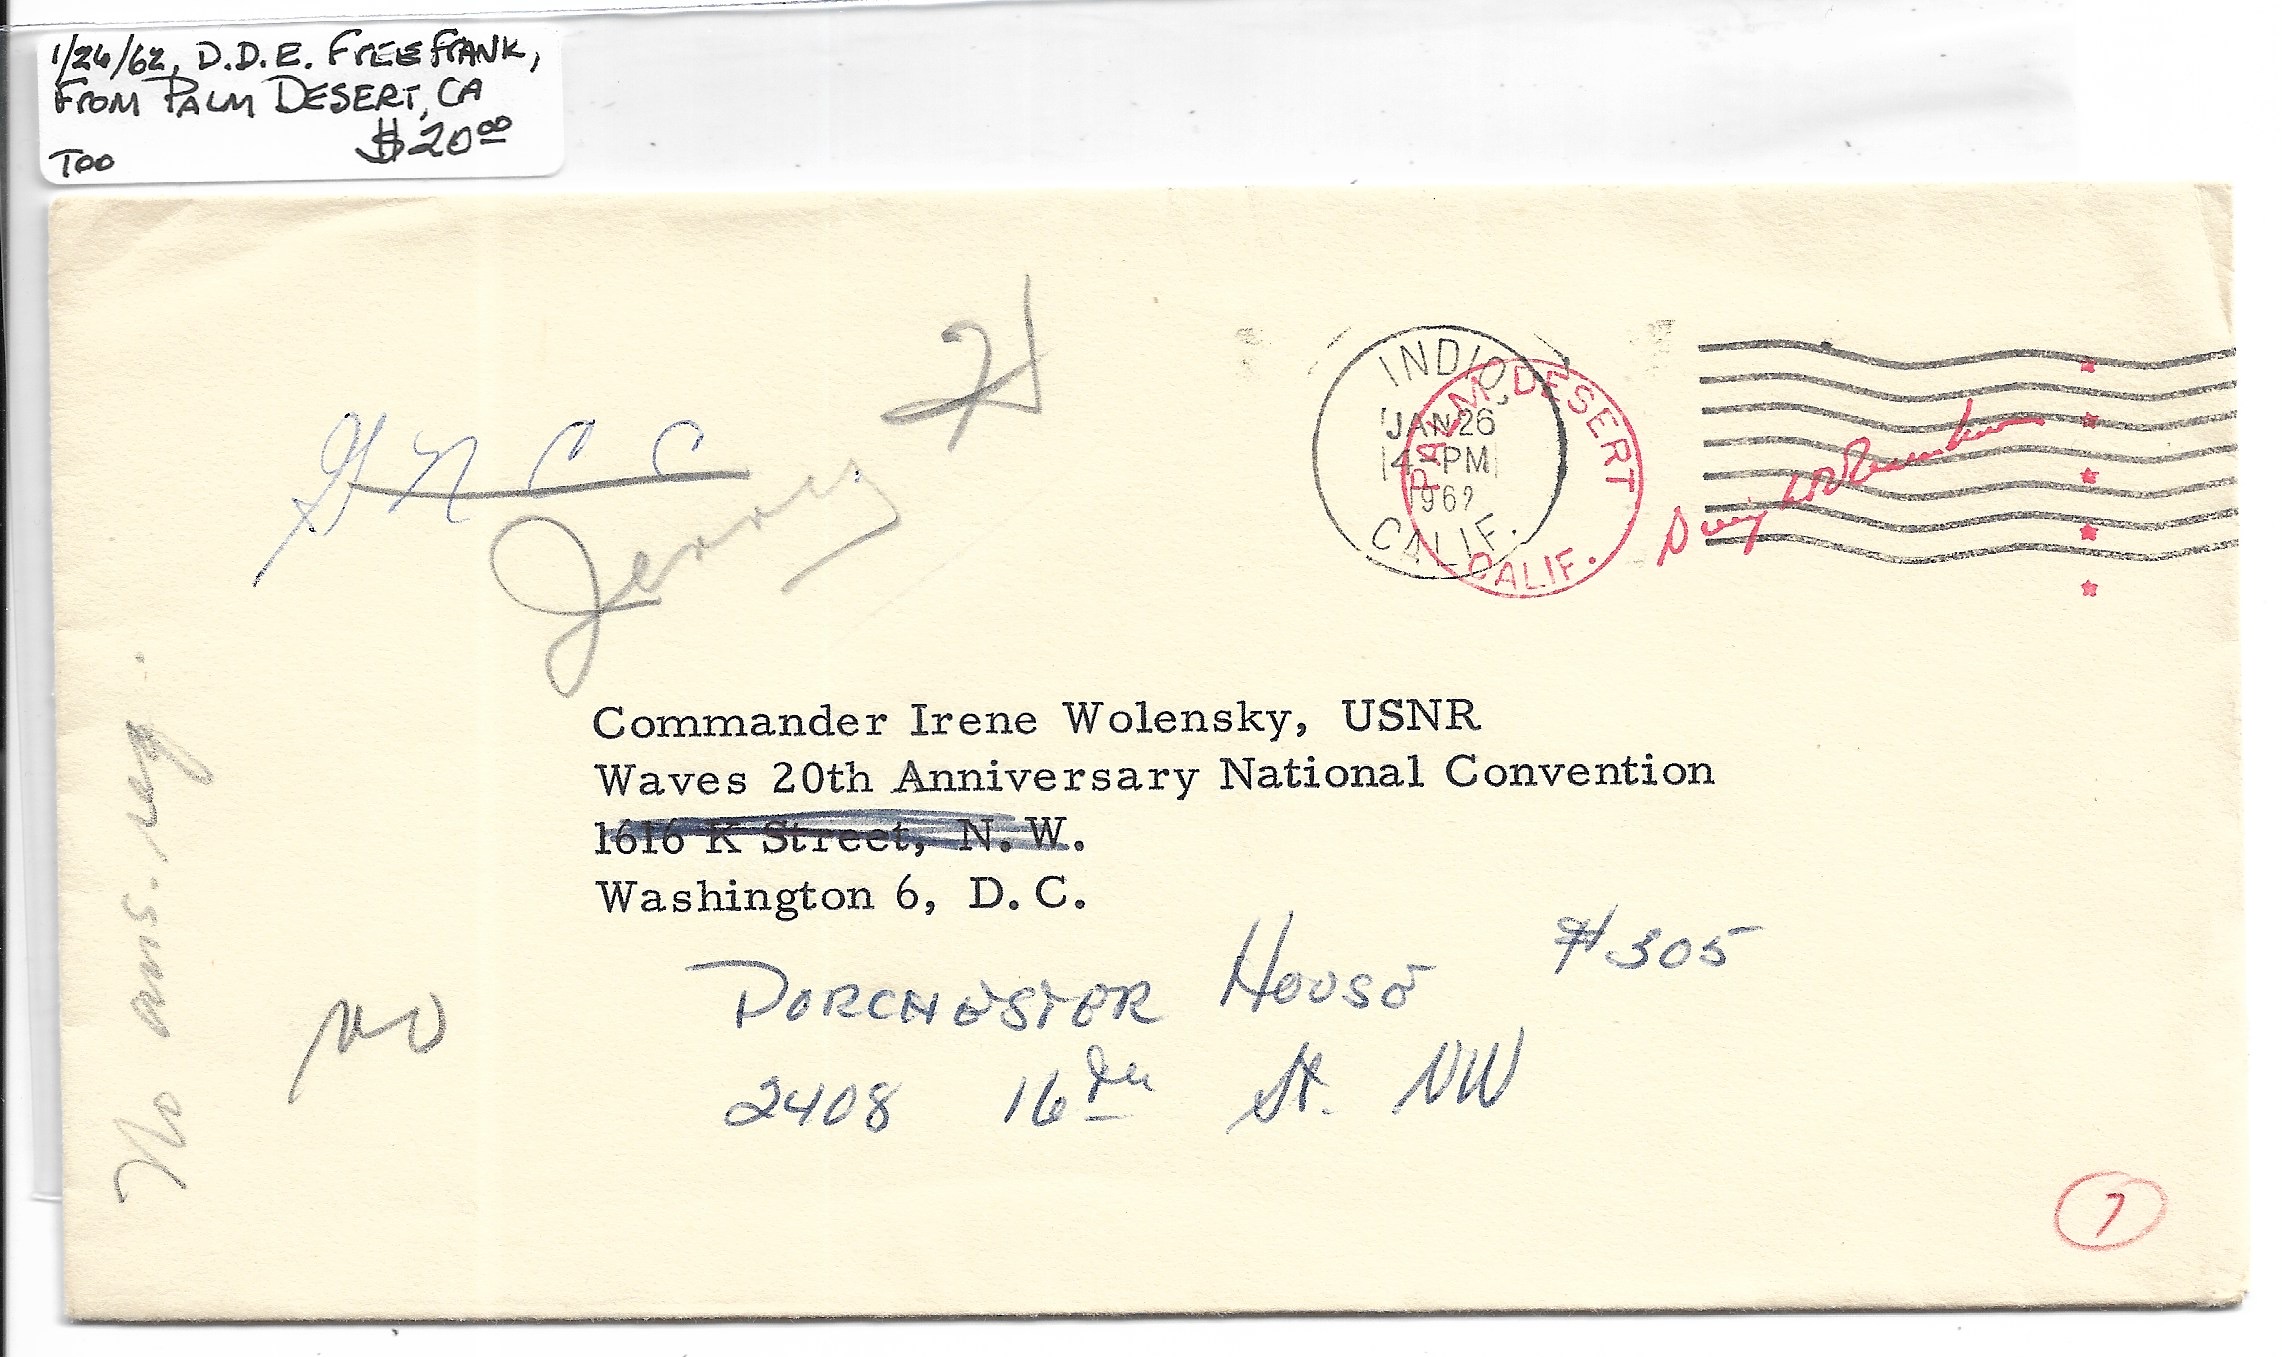 1/26/62, D.D.E. FREE FRANK,
FROM PALM DESERT, CA
$20.00
TOO
INDIO,
JAN 26
4 PM
1962
CALIF.
PALM DESERT
CALIF.
Dwight D Eisenhower
G N C C
Jerry H
Commander Irene Wolensky, USNR
Waves 20th Anniversary National Convention
1616 K Street, N.W.
Washington 6, D.C.
DORCHESTER HOUSE #305
2408 16th St. NW
No ans. reg.
NO
7